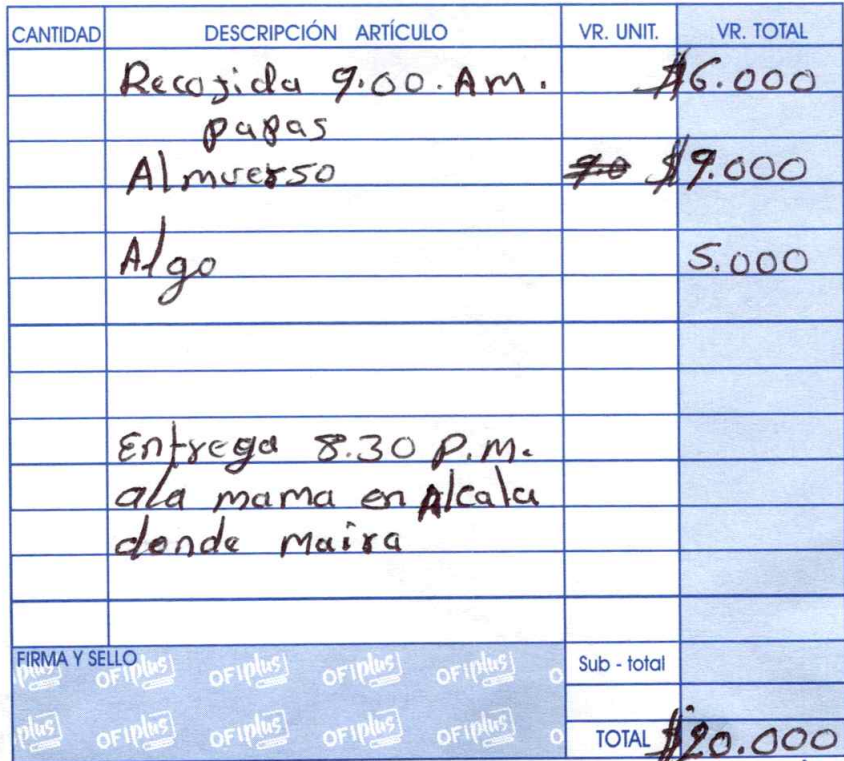 CANTIDAD DESCRIPCIÓN ARTÍCULO VR. UNIT. VR. TOTAL
Recojida 9:00. Am. $6.000
papas
Almuerso 9.0 $9.000
Algo 5.000
Entrega 8.30 P.M.
ala mama en Alcala
donde maira
FIRMA Y SELLO Sub - total
plus OFIplus OFIplus OFIplus OFIplus
plus OFIplus OFIplus OFIplus OFIplus
TOTAL $20.000